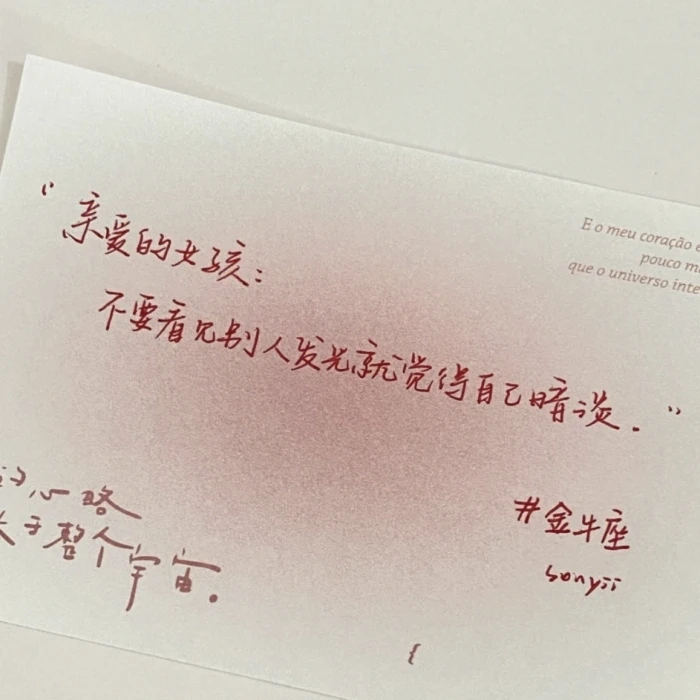 “亲爱的女孩：
不要看见别人发光就觉得自己暗淡.”
E o meu coração é
pouco m
que o universo inte
的心略
大于整个宇宙.
#金牛座
sonyii
{